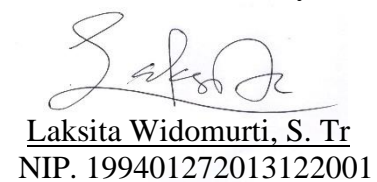 Laksita Widomurti, S. Tr
NIP. 199401272013122001